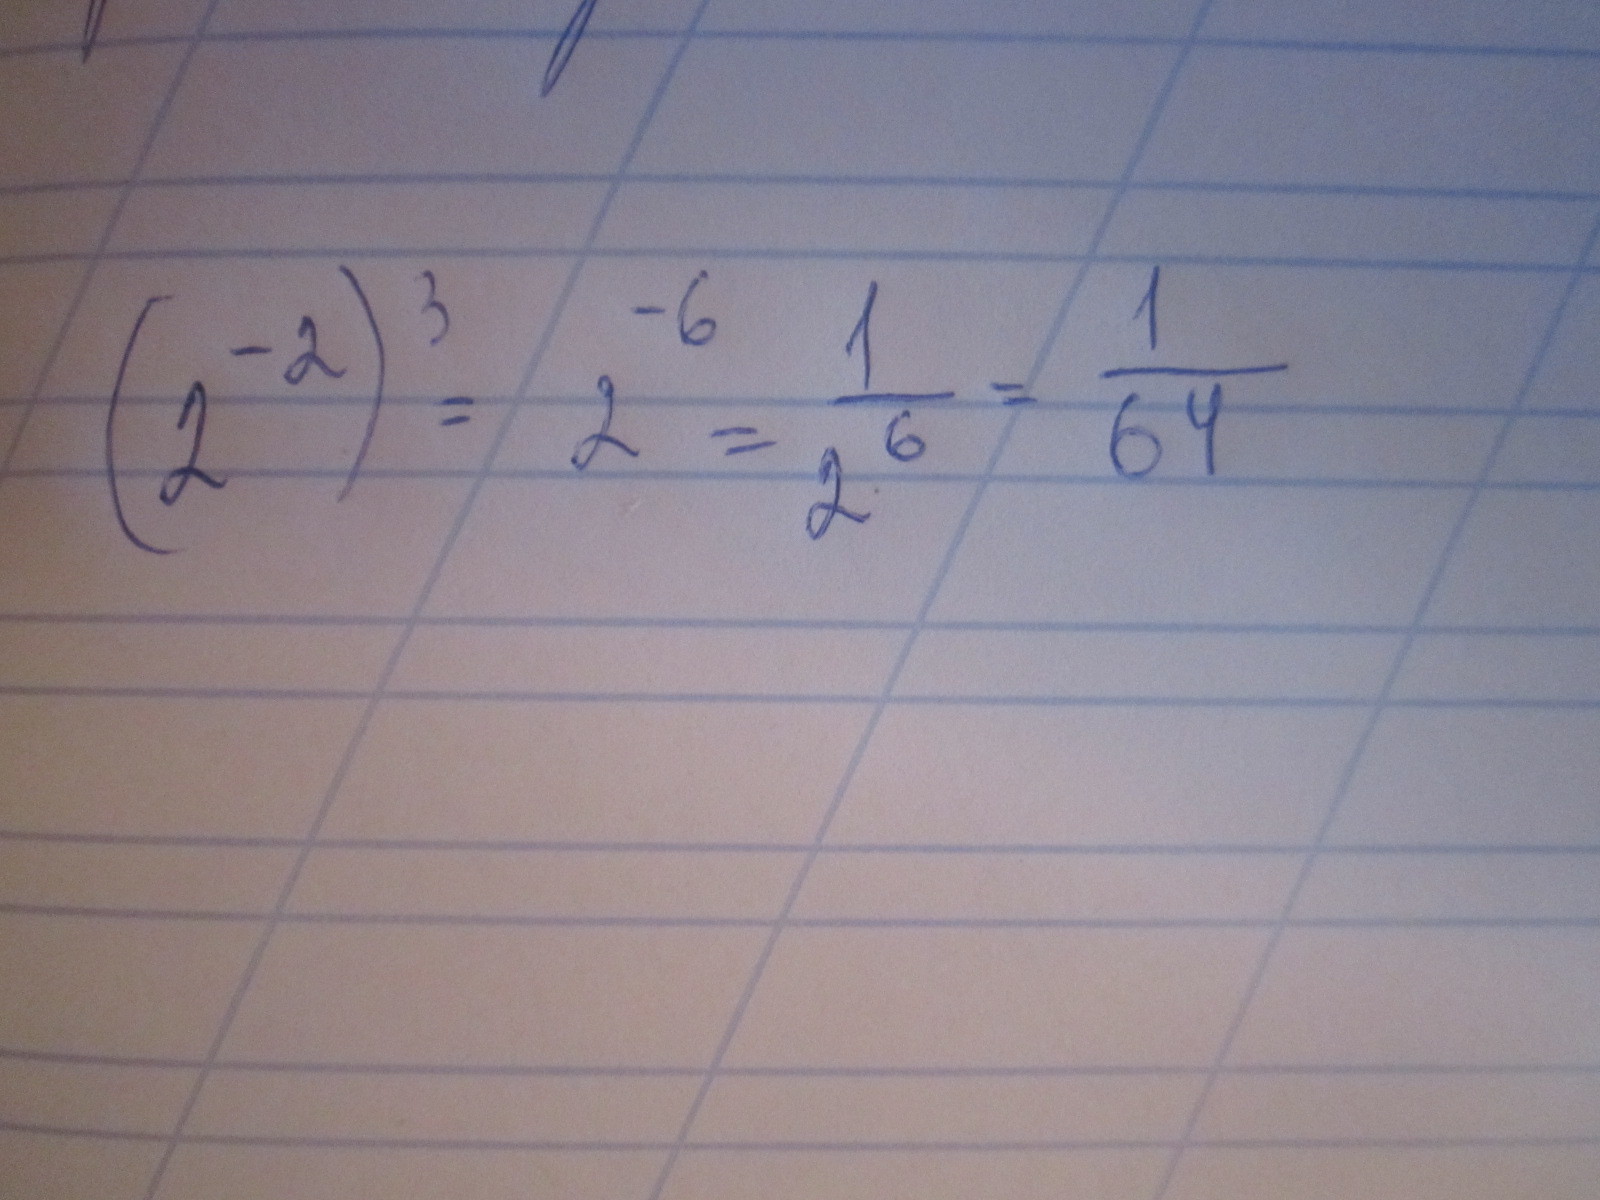 (2^-2)^3 = 2^-6 = 1/2^6 = 1/64